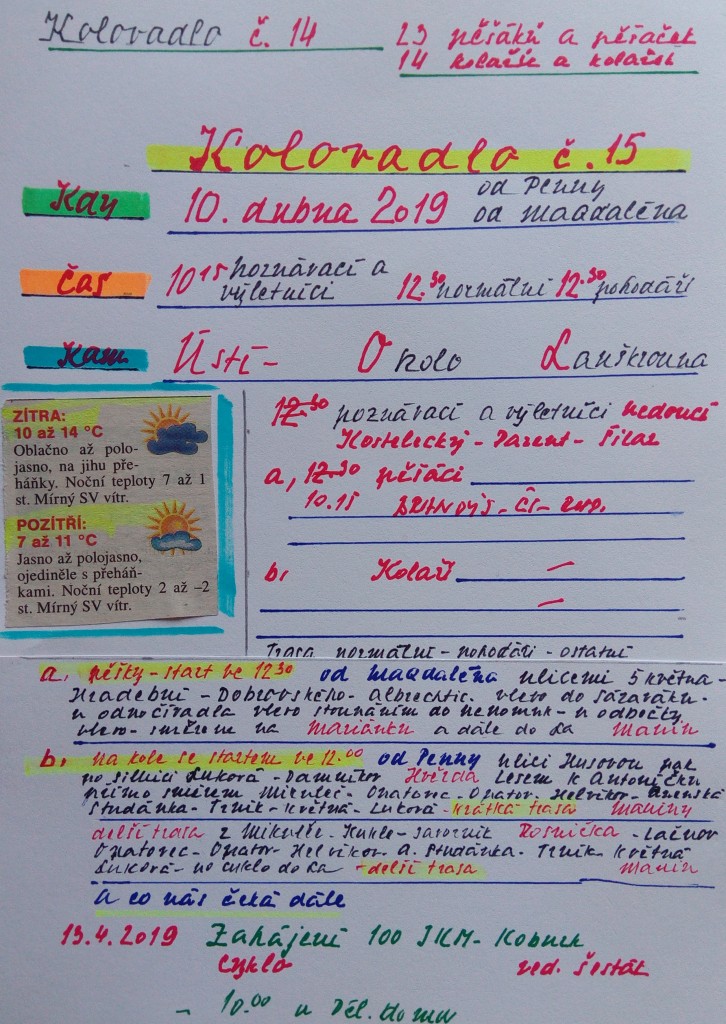 Kolovadlo č. 14
23 pěšáků a pěšaček
14 kolařů a kolařek
Kolovadlo č. 15
Kdy 10. dubna 2019 od Penny
od Magdaléna
Čas 10 15 poznávací a
výletníci 12.30 normální 12.30 pohodáři
Kam Ústí - Okolo Lanškrouna
ZÍTRA:
10 až 14 °C
Oblačno až polo-
jasno, na jihu pře-
háňky. Noční teploty 7 až 1
st. Mírný SV vítr.
POZÍTŘÍ:
7 až 11 °C
Jasno až polojasno,
ojediněle s přeháň-
kami. Noční teploty 2 až –2
st. Mírný SV vítr.
12.30 poznávací a výletníci vedoucí
Kostelecký - Parent - Šilar
a, 12.30 pěšáci
10.15
b, Kolaři —
—
Trasa normální - pohodáři - ostatní
a, pěšky - start ve 12 30 od Magdaléna ulicemi 5 května -
Hradební - Dobrovského - Albrechtic. vlevo do
u odpočívadla vlevo stoupáním do Nepomuk - u odbočky
vlevo - směrem na Mariánku a dále do La
b, na kole se startem ve 12.00 od Penny ulicí Husovou pak
po silnici Luková - Damníkov Hvězda Lesem k Antoníčku
přímo směrem Mikuleč - Opatovec - Opatov - Helvíkov -
Studánka - Trpík - Květná - Luková - krátká trasa
delší trasa z Mikulče - Kukle - Javorník Rosnička -
Opatovec - Opatov - Helvíkov A. Studánka - Trpík Květná
Luková - po cyklo do La - delší trasa
A co nás čeká dále
13.4.2019 Zahájení 100 JKM -
cyklo ved. Šesták
- 10.00 u Děl. domu